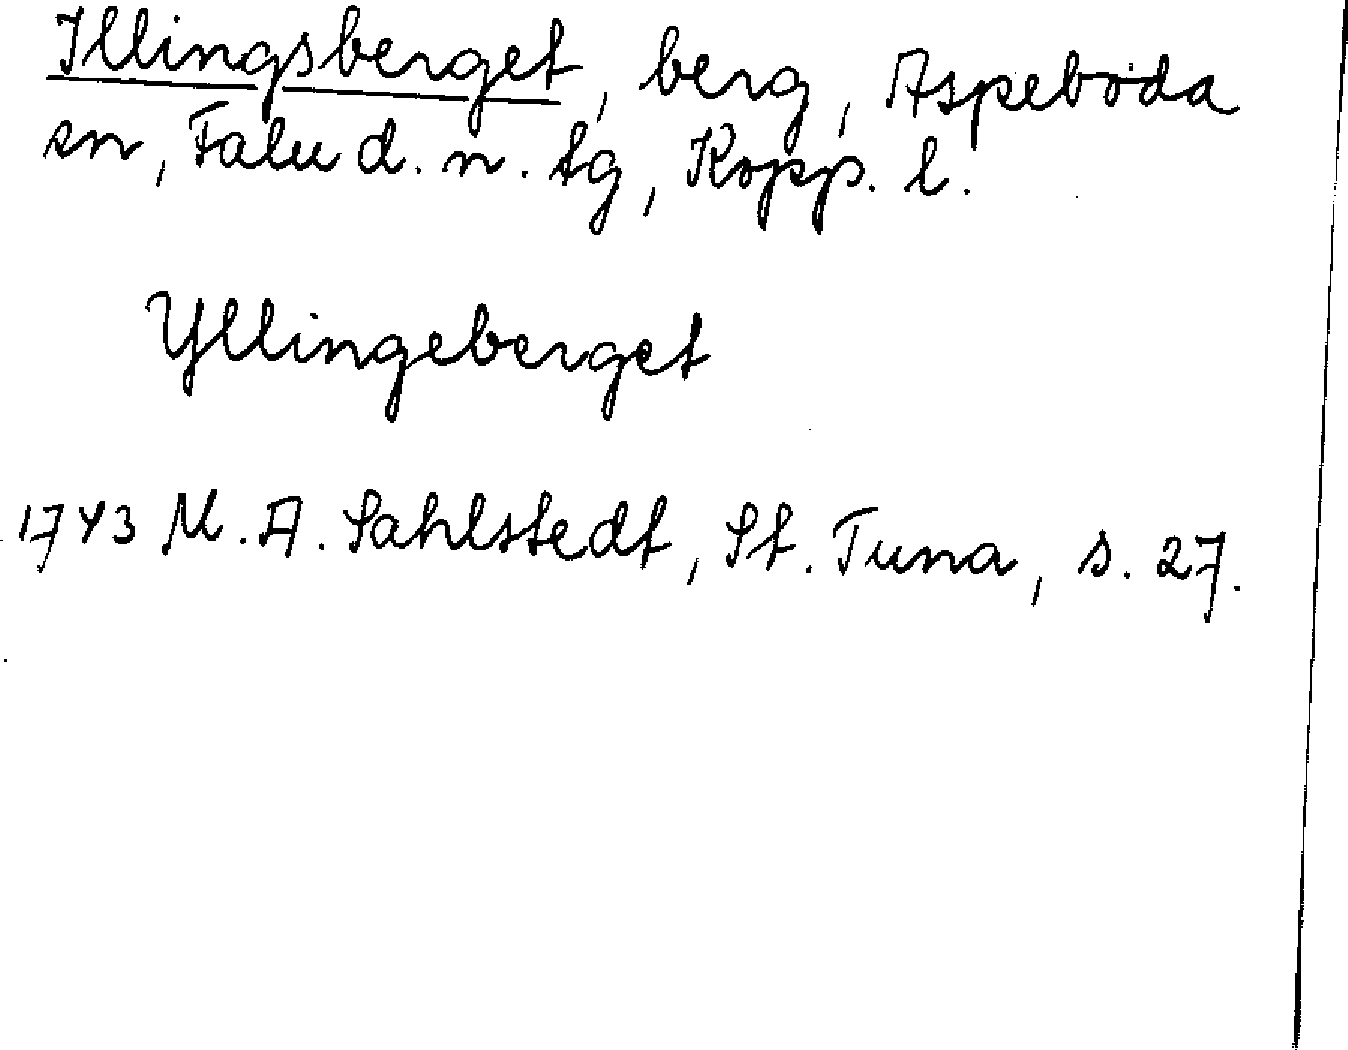 Illingsberget, berg, Aspeboda
sn, Falu d. n. tg, Kopp. l.
Yllingeberget
1743 M. A. Sahlstedt, St. Tuna, s. 27.